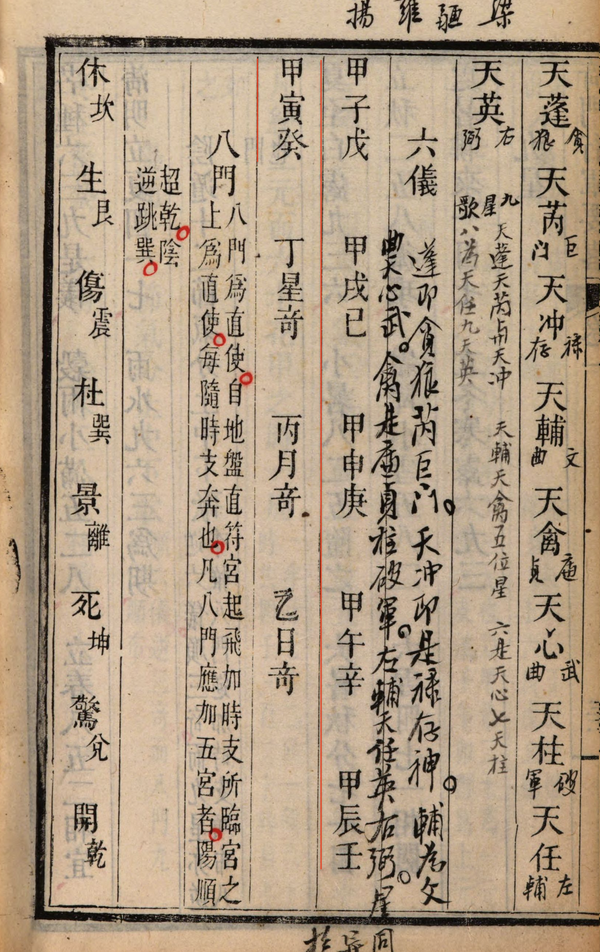 梁 疆 雍 揚
天蓬貪狼 天芮巨門 天冲祿存 天輔文曲 天禽廉貞 天心武曲 天柱破軍 天任左輔
天英右弼
九星歌 天蓬天芮與天冲 天輔天禽五位星 六是天心七天柱
八為天任九天英
六儀
蓬即貪狼芮巨门。天冲即是禄存神。輔為文
曲天心武。禽是廉貞柱破軍。左輔天任英右弼。星
甲子戊 甲戌己 甲申庚 甲午辛 甲辰壬
甲寅癸 丁星奇 丙月奇 乙日奇
八門 八門為直使自地盤直符宮起飛加時支所臨宮之
門上為直使每隨時支奔也凡八門應加五宮者陽順
超乾陰
逆跳巽
休坎 生艮 傷震 杜巽 景離 死坤 驚兌 開乾